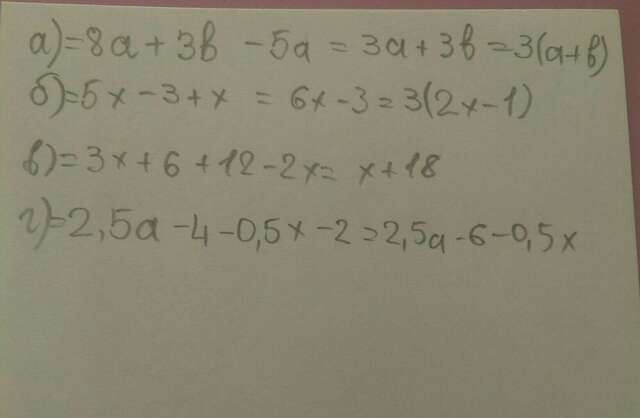 а)=8a+3b -5a = 3a+3b=3(a+b)
б)=5x-3+x = 6x-3=3(2x-1)
в)=3x+6+12-2x= x+18
г)=2,5a-4-0,5x-2=2,5a-6-0,5x